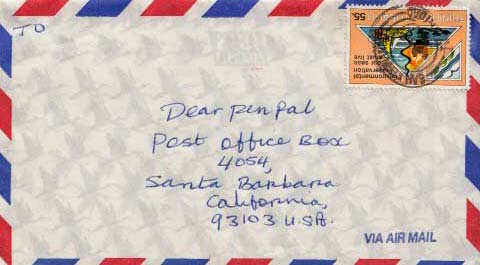 TO
Dear Pen Pal
Post Office Box
4054,
Santa Barbara
California,
93103 U.S.A.
VIA AIR MAIL
55c
Environmental
Conservation
our seas
must live